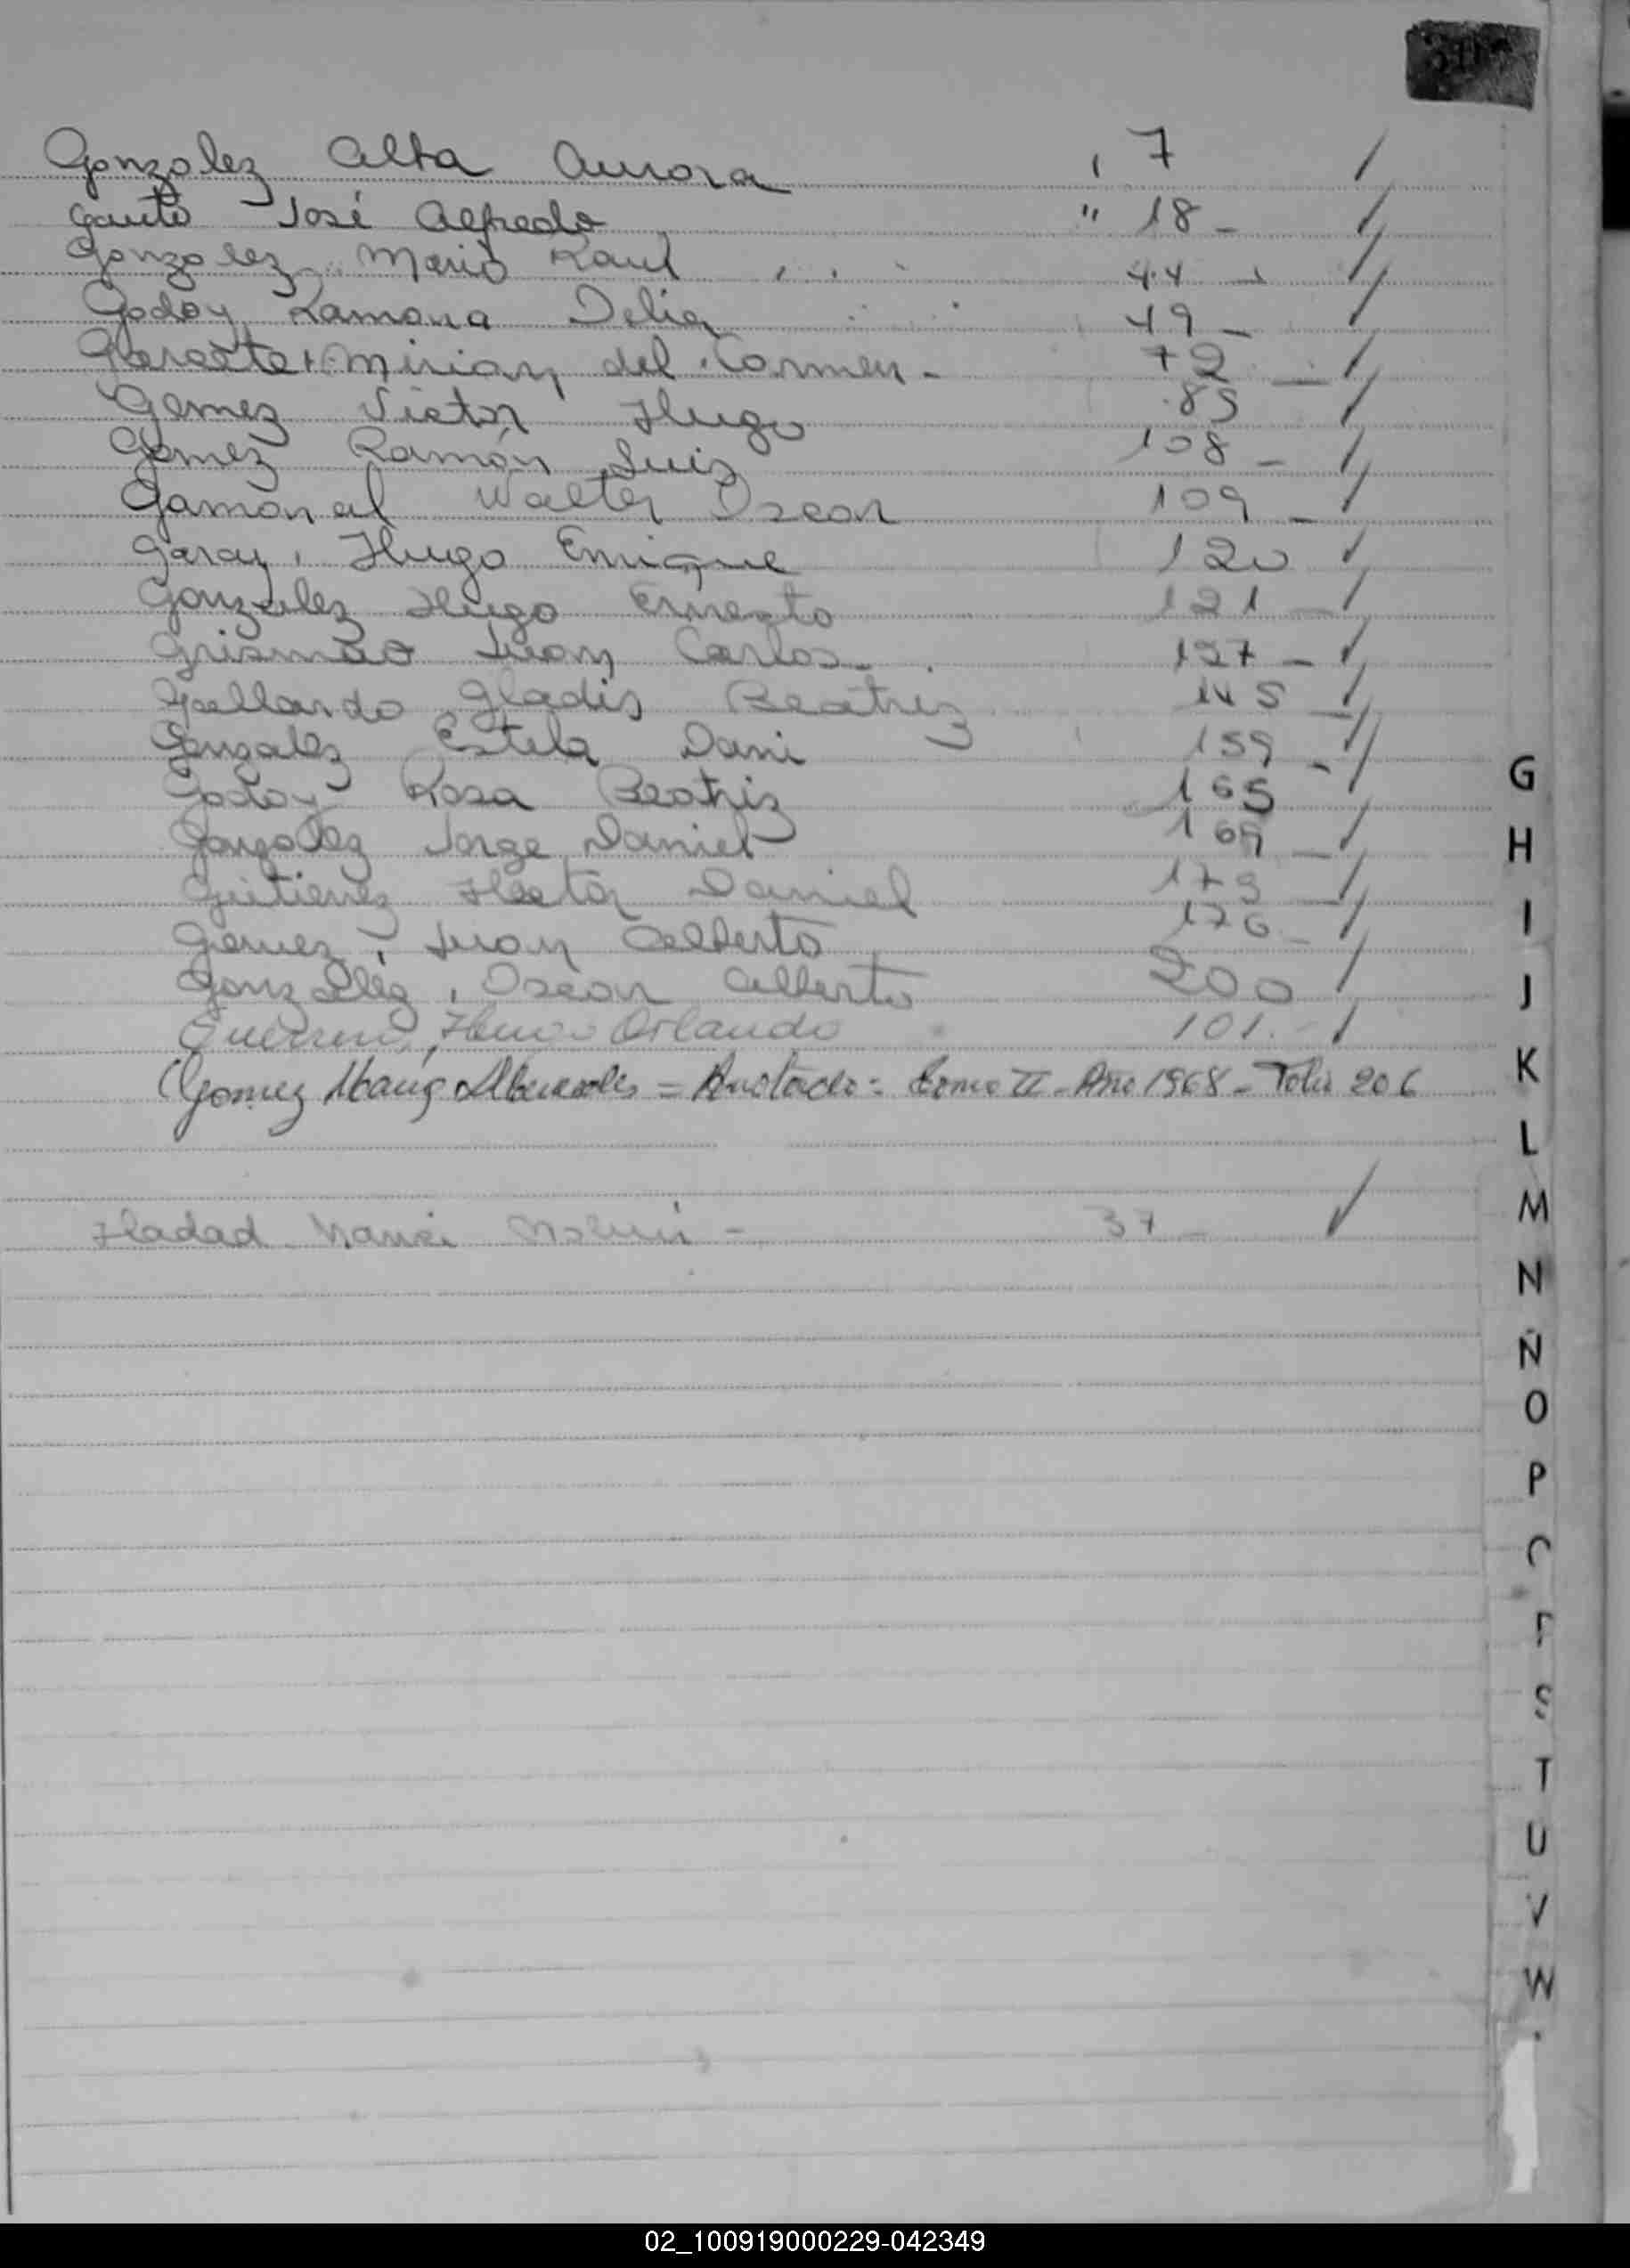 Gonzalez Alba Aurora " 7
Gauto José Alfredo " 18 -
Gonzalez Mario Raul 44 -
Godoy Ramona Delia 49 -
Mirian del Carmen - 72 -
Gomez Victor Hugo 85
Gomez Ramón Luis 108 -
Gamonal Walter Oscar 109 -
Garay, Hugo Enrique 120
Gonzalez Hugo Ernesto 121 -
Juan Carlos - 127 -
Gallardo Gladis Beatriz 145 -
Gonzalez Estela 159 -
Godoy Rosa Beatriz 165
Gonzalez Jorge Daniel 169 -
Gutierrez Hector Daniel 173 -
Gomez, Juan Alberto 176 -
Gonzalez, Oscar Alberto 200
Guerrero, Hugo Orlando 101. -
Gomez = Anotado: Tomo II - Año 1968 - Folio 206
Hadad 37 -
G
H
I
J
K
L
M
N
Ñ
O
P
S
T
U
V
W
02_100919000229-042349